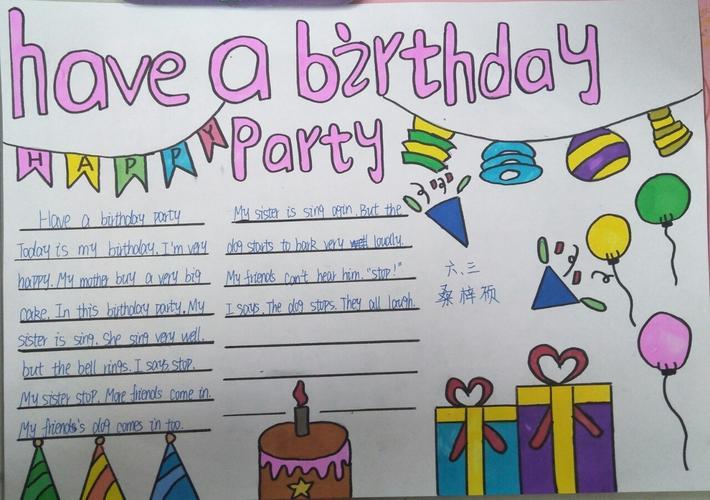 have a birthday
HAPPY
Party
Have a birthday party
Today is my birthday. I'm very
happy. My mother buy a very big
cake. In this birthday party. My
sister is sing. She sing very well.
but the bell rings. I says, stop.
My sister stop. More friends come in.
My friends's dog comes in too.
My sister is sing agin. But the
dog starts to bark very loudly.
My friends can't hear him. "stop!"
I says. The dog stops. They all laugh.
六、三
桑梓硕